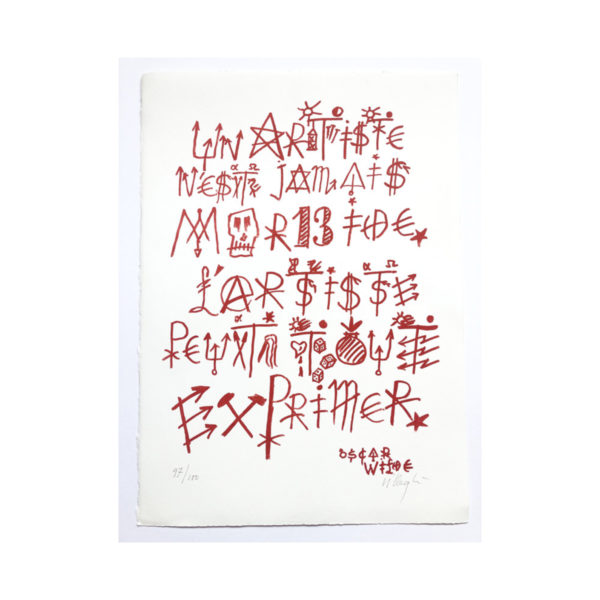 UN ARTISTE
N'EST JAMAIS
MORBIDE
L'ARTISTE
PEUT TOUT
EXPRIMER
OSCAR
WILDE
97/100